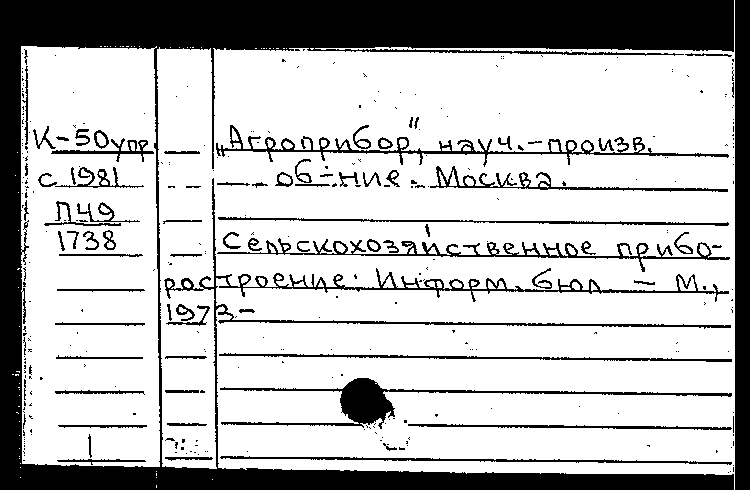 К-50упр. „Агроприбор", науч.-произв.
с 1981 об-ние. Москва.
П49
1738 Сельскохозяйственное прибо-
ростроение: Информ. бюл. — М.,
1973-